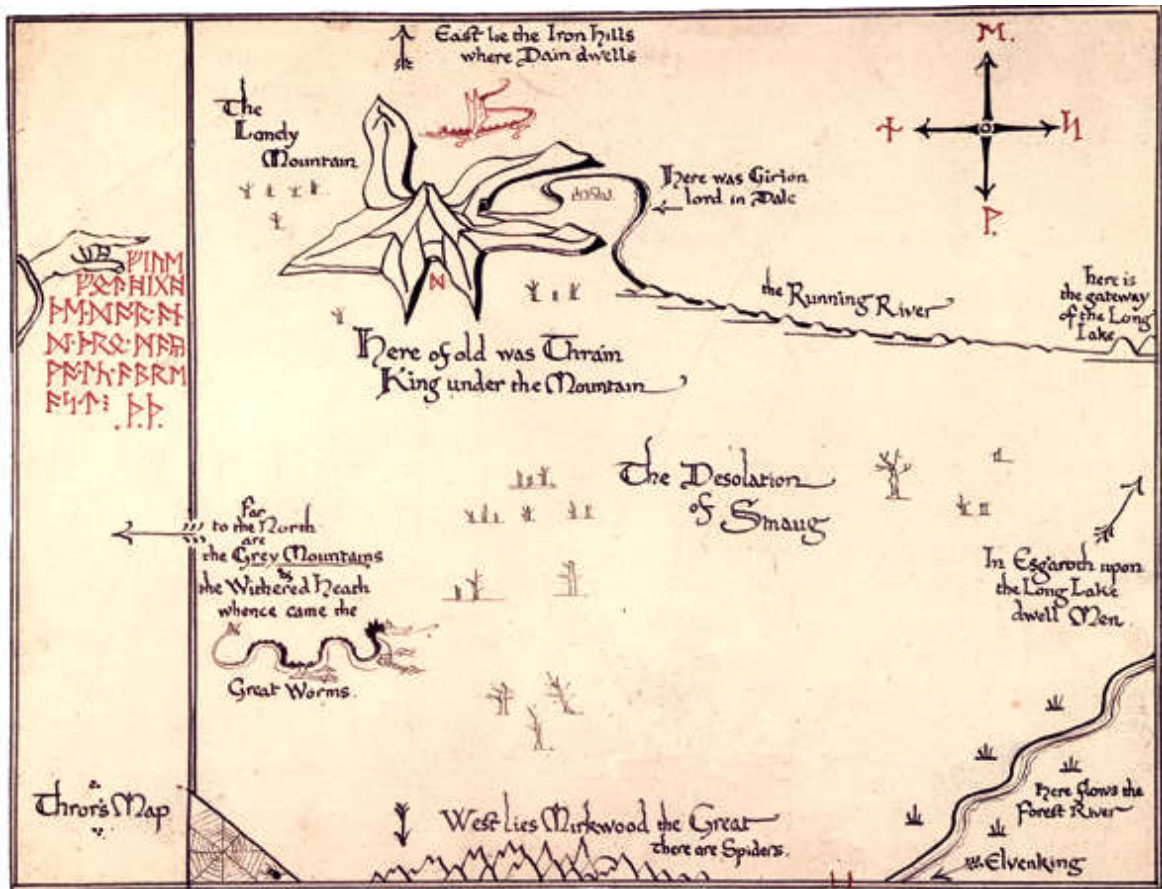 East lie the Iron Hills
where Dain dwells
ᛖ.
ᚾ
ᛋ
ᚹ.
The
Lonely
Mountain
Here was Girion
lord in Dale
ᚠᛁᚢᛖ
ᚠᛟᛏᚻᛁᚷᚻ
ᚦᛖᛞᚩᚱ᛫ᚪᚾ
ᛞ᛫ᚦᚱᛟ᛫ᛗᚪᚣ
ᚹᚪᛚᚳ᛫ᚪᛒᚱᛖ
ᚪᛋᛏ᛬ ᚦ᛫ᚦ᛫
ᛞ
the Running River
here is
the gateway
of the Long
Lake
Here of old was Thrain
King under the Mountain
The Desolation
of Smaug
Far
to the North
are
the Grey Mountains
&
the Withered Heath
whence came the
Great Worms.
In Esgaroth upon
the Long Lake
dwell Men.
Thror's Map
West lies Mirkwood the Great
there are Spiders.
Here flows the
Forest River
Elvenking